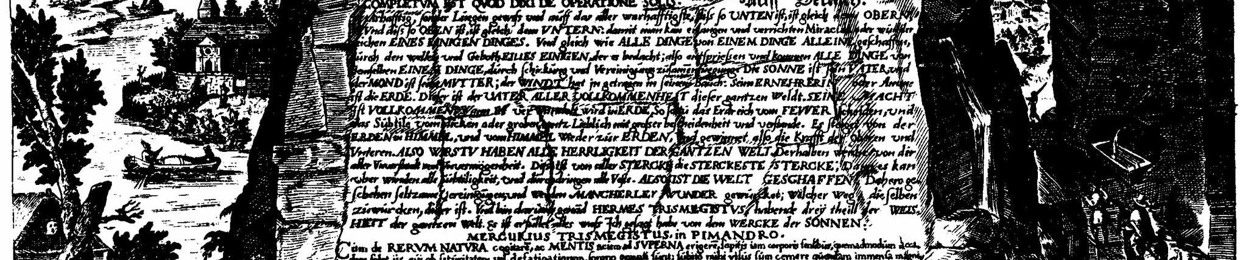 COMPLETVM EST QVOD DIXI DE OPERATIONE SOLIS.
Warhafftig, sonder Liegen gewiß und auff das aller warhafftigste, diß so UNTEN ist, ist gleich dem OBERN
Vnd diß so OBEN ist, ist gleich dem VNTERN: damit man kan erlangen und verrichten Miracula oder wunder
zeichen EINES EINIGEN DINGES. Vnd gleich wie ALLE DINGE von EINEM DINGE ALLEINE geschaffen,
durch den willen und Geboth EINES EINIGEN, der es bedacht; also entspriessen und kommen ALLE DINGE von
demselben EINEM DINGE, durch schickung und Vereinigung DIE SONNE ist sein VATER, und
der MOND ist seine MVTTER; der WINDT hat jn getragen in seinem bauch: Seine ERNEHRERIN oder Amme
ist die ERDE. Dieser ist der VATER ALLER VOLLKOMMENHEIT dieser gantzen Weldt. SEINE MACHT
ist VOLLKOMMEN wird in ERDE So solt das Erdreich vom FEWER scheiden, und
das Subtile vom dicken oder groben, gantz Lieblich mit grosser bescheidenheit und verstande. Es steiget von der
ERDEN in HIMMEL, und vom HIMMEL Wieder zur ERDEN, und gewinnet also die Krafft der Obern und
Vnteren. ALSO WIRSTV HABEN ALLE HERRLIGKEIT DER GANTZEN WELT. Derhalben weiche von dir
aller Vnverstandt und Unvermügenheit. Diß ist von aller STERCKE die STERCKESTE STERCKE, Dann es kan
uber winden alle Subtiligkeit, und durchdringen alle Veste. ALSO IST DIE WELT GESCHAFFEN, Dahero ge-
schehen seltzame Vereinigungen und werden MANCHERLEY WUNDER gewürcket; wilcher Weg die selben
zuwürcken, dieser ist. Vnd bin darum genand HERMES TRISMEGISTVS, habende drey theill der WEIS-
HEIT der gantzen Welt. Es ist erfüllet alles was Ich gesagt habe von dem WERCKE der SONNEN.
MERCURIUS TRISMEGISTUS. in PIMANDRO.
Cum de RERVM NATVRA cogitarē, ac MENTIS aciem ad SVPERNA erigerē, sopitis iam corporis sensibus, quemadmodum